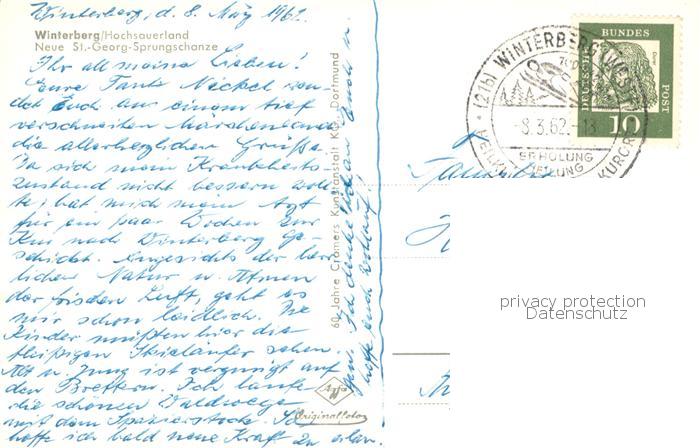 Winterberg, d. 8. März 1962.
Winterberg/Hochsauerland
Neue St.-Georg-Sprungschanze
Ihr all meine Lieben!
Eure Tante Nickel sen-
det Euch aus einem tief
verschneiten Märchenland
die allerherzlichen Grüße.
Da sich mein Krankheits-
zustand nicht bessern woll-
te, hat mich mein Arzt
für ein paar Wochen zur
Kur nach Winterberg ge-
schickt. Angesichts der herr-
lichen Natur u. Atmen
der frischen Luft, geht es
mir schon leidlich. Die
Kinder müßten hier die
fleißigen Skiläufer sehen.
Alt u. Jung ist vergnügt auf
den Brettern. Ich laufe
die schönen Waldwege
mit dem Spazierstock. So
hoffe ich bald neue Kraft zu
Ich denke an Euch u.
hoffe, auch
60 Jahre Cramers Kunstanstalt KG, Dortmund
Agfa
Originalfoto
(21b) WINTERBERG (WESTF)
-8.3.62.-18
ERHOLUNG
HEILKL
KURORT
DEUTSCHE
BUNDES
POST
10
privacy protection
Datenschutz